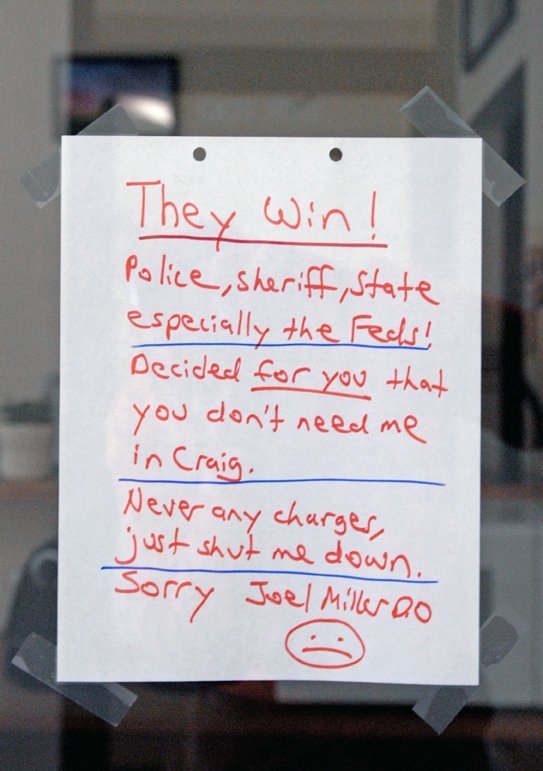 They Win!
Police, Sheriff, State
especially the Feds!
Decided for you that
you don't need me
in Craig.
Never any charges,
just shut me down.
Sorry Joel Miller DO